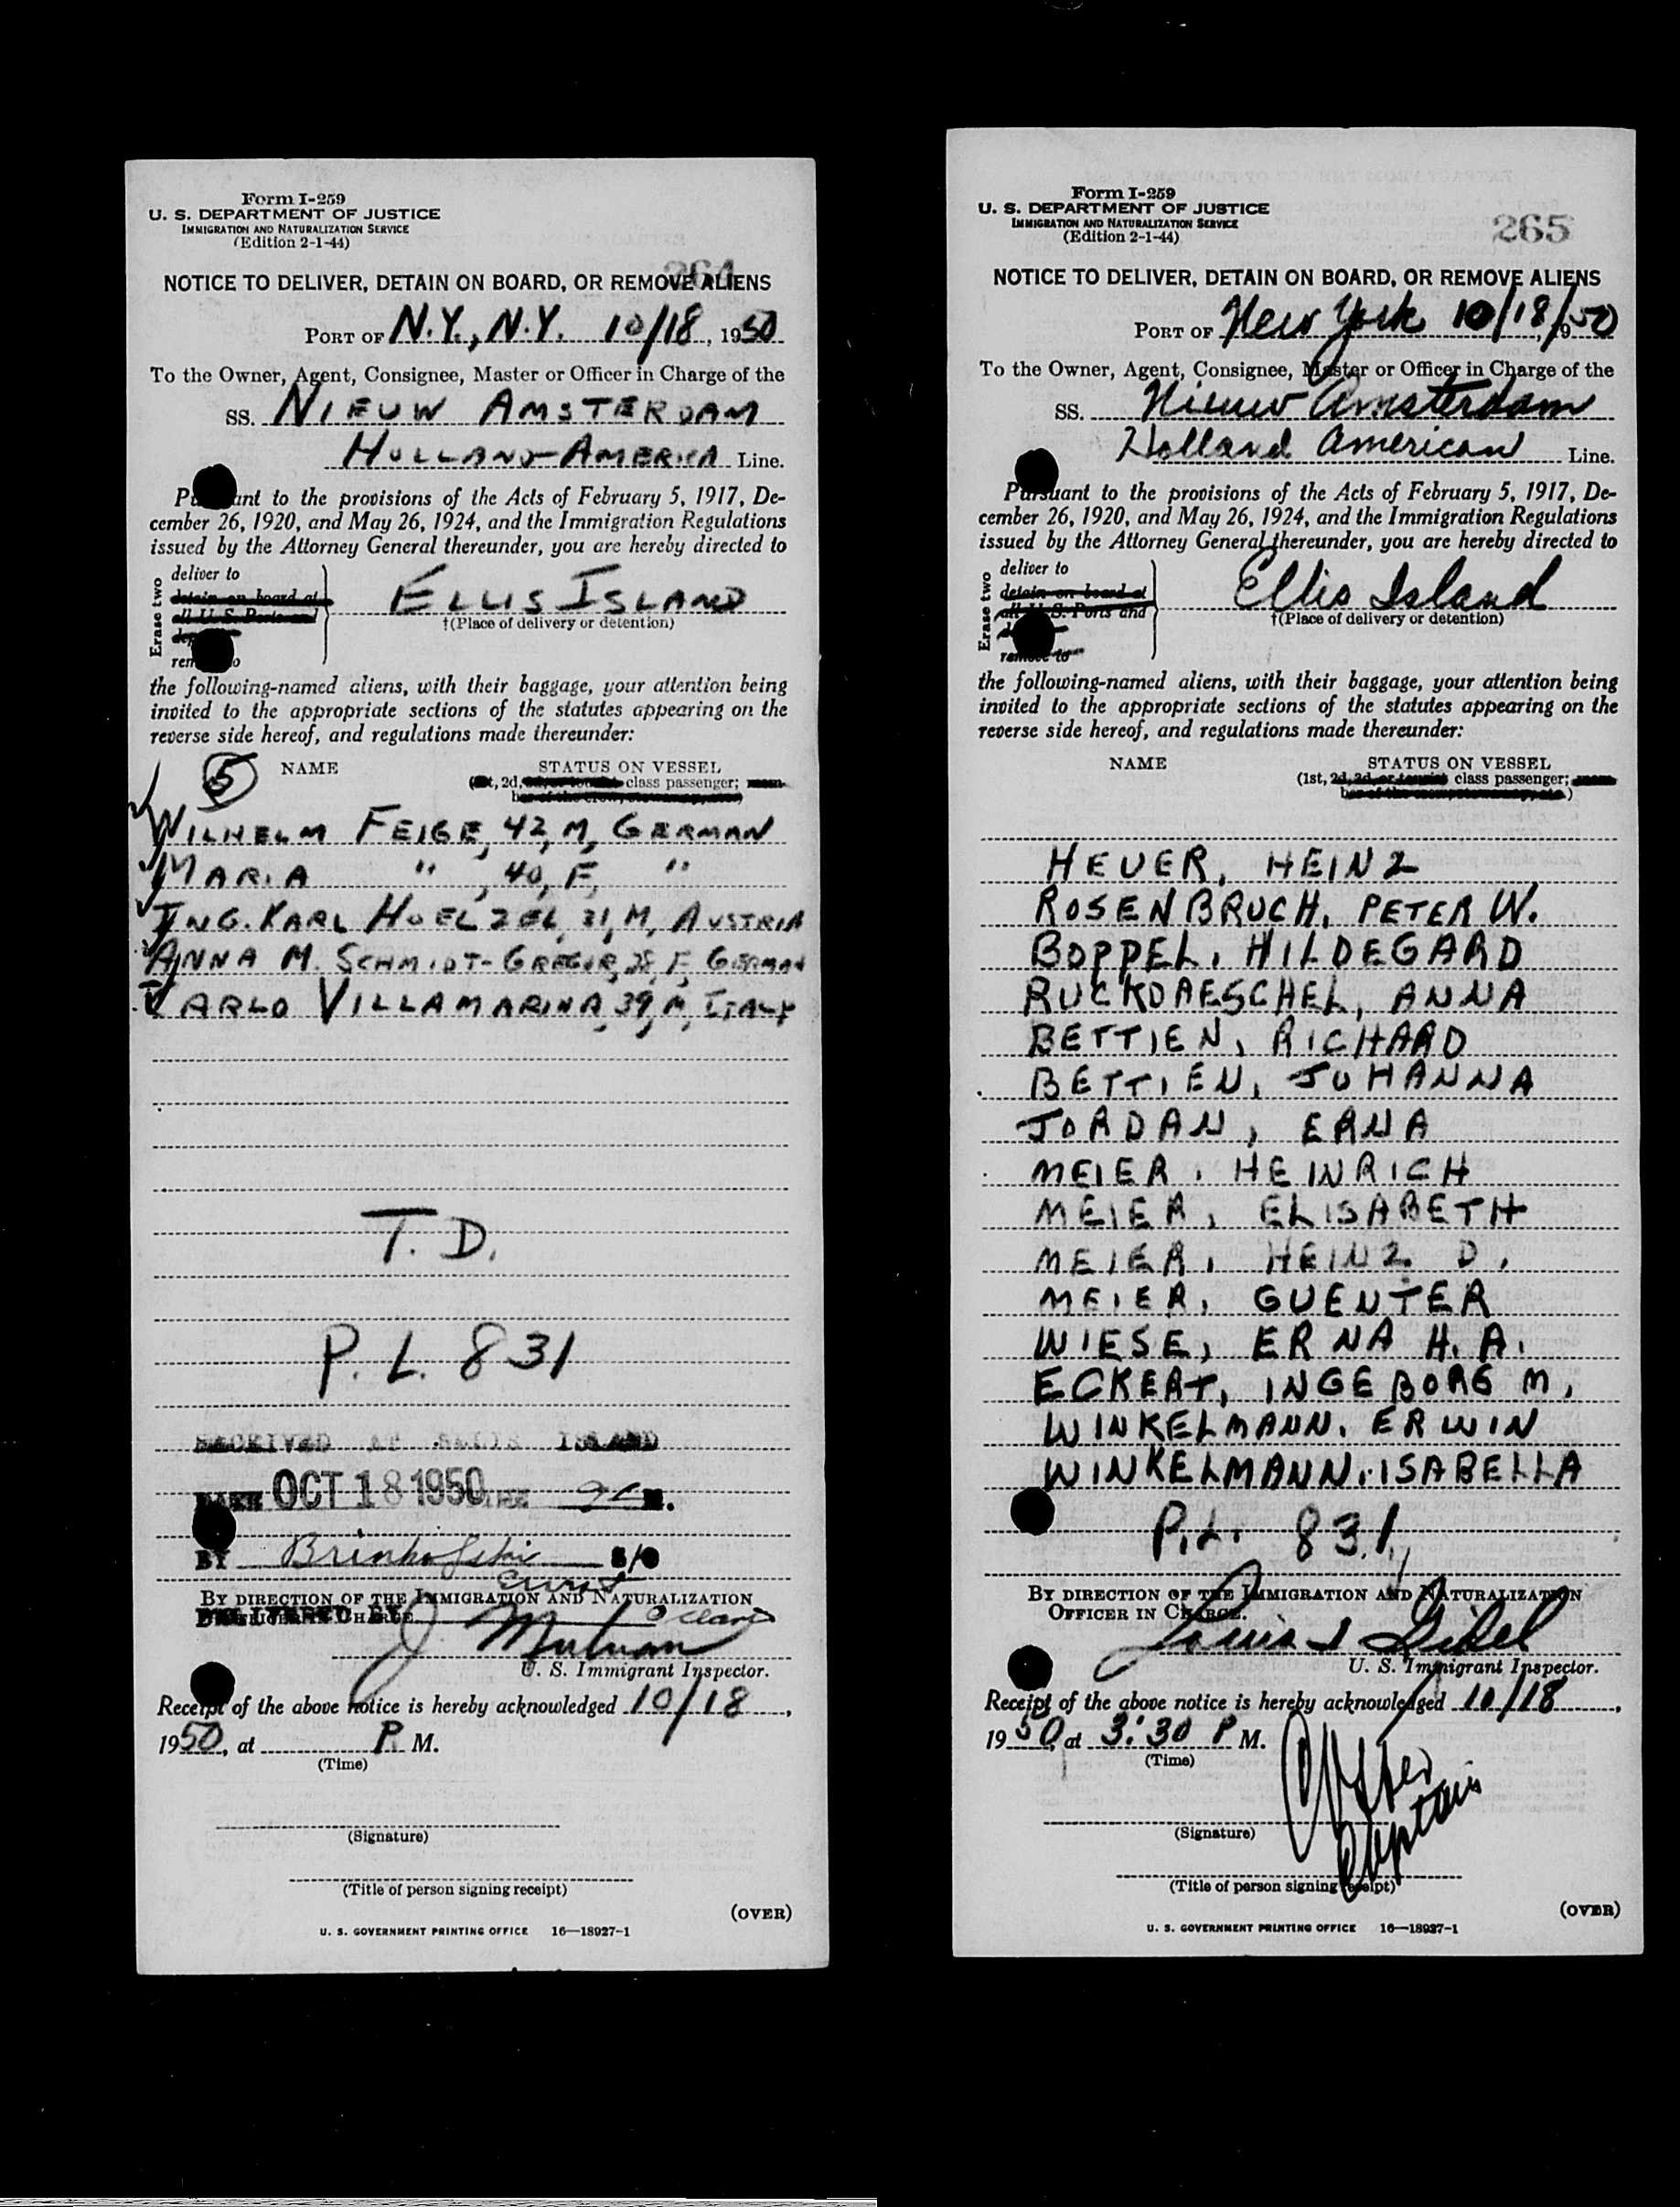 Form I-259
U. S. DEPARTMENT OF JUSTICE
IMMIGRATION AND NATURALIZATION SERVICE
(Edition 2-1-44)
264
NOTICE TO DELIVER, DETAIN ON BOARD, OR REMOVE ALIENS
PORT OF N.Y., N.Y. 10/18, 1950
To the Owner, Agent, Consignee, Master or Officer in Charge of the
SS. NIEUW AMSTERDAM
HOLLAND-AMERICA Line.
Pursuant to the provisions of the Acts of February 5, 1917, De-
cember 26, 1920, and May 26, 1924, and the Immigration Regulations
issued by the Attorney General thereunder, you are hereby directed to
Erase two
deliver to
detain on board at
all U. S. Ports and
remove to
ELLIS ISLAND
†(Place of delivery or detention)
the following-named aliens, with their baggage, your attention being
invited to the appropriate sections of the statutes appearing on the
reverse side hereof, and regulations made thereunder:
5 NAME STATUS ON VESSEL
2d, class passenger;
WILHELM FEIGE, 42, M, GERMAN
MARIA " , 40, F, "
ING. KARL HOELZEL, 31, M, AUSTRIA
ANNA M. SCHMIDT-GREGOR, 38, F, GERMAN
CARLO VILLAMARINA, 39, M, ITALY
T. D.
P. L. 831
RECEIVED AT ELLIS ISLAND
DATE OCT 18 1950 TIME M.
BY S/O
BY DIRECTION OF THE IMMIGRATION AND NATURALIZATION
OFFICER IN CHARGE.
DELIVERED BY
J.
U. S. Immigrant Inspector.
Receipt of the above notice is hereby acknowledged 10/18,
1950, at P. M.
(Time)
(Signature)
(Title of person signing receipt)
(OVER)
U. S. GOVERNMENT PRINTING OFFICE 16—18927-1
Form I-259
U. S. DEPARTMENT OF JUSTICE
IMMIGRATION AND NATURALIZATION SERVICE
(Edition 2-1-44)
265
NOTICE TO DELIVER, DETAIN ON BOARD, OR REMOVE ALIENS
PORT OF New York 10/18/, 1950
To the Owner, Agent, Consignee, Master or Officer in Charge of the
SS. Nieuw Amsterdam
Holland American Line.
Pursuant to the provisions of the Acts of February 5, 1917, De-
cember 26, 1920, and May 26, 1924, and the Immigration Regulations
issued by the Attorney General thereunder, you are hereby directed to
Erase two
deliver to
detain on board at
all U. S. Ports and
remove to
Ellis Island
†(Place of delivery or detention)
the following-named aliens, with their baggage, your attention being
invited to the appropriate sections of the statutes appearing on the
reverse side hereof, and regulations made thereunder:
NAME STATUS ON VESSEL
(1st, 2d, 3d, or tourist class passenger;
HEUER, HEINZ
ROSENBRUCH, PETER W.
BOPPEL, HILDEGARD
RUCKDAESCHEL, ANNA
BETTIEN, RICHARD
BETTIEN, JOHANNA
JORDAN, ERNA
MEIER, HEINRICH
MEIER, ELISABETH
MEIER, HEINZ D.
MEIER, GUENTER
WIESE, ERNA H. A.
ECKERT, INGEBORG M.
WINKELMANN, ERWIN
WINKELMANN, ISABELLA
P.L. 831
BY DIRECTION OF THE IMMIGRATION AND NATURALIZATION
OFFICER IN CHARGE.
Louis
U. S. Immigrant Inspector.
Receipt of the above notice is hereby acknowledged 10/18,
1950, at 3:30 P M.
(Time)
Captain
(Signature)
(Title of person signing receipt)
(OVER)
U. S. GOVERNMENT PRINTING OFFICE 16—18927-1